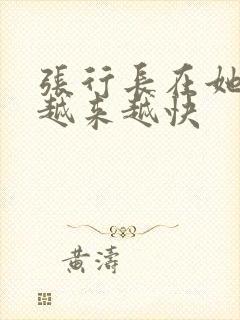 張行長在她
越来越快
黄濤